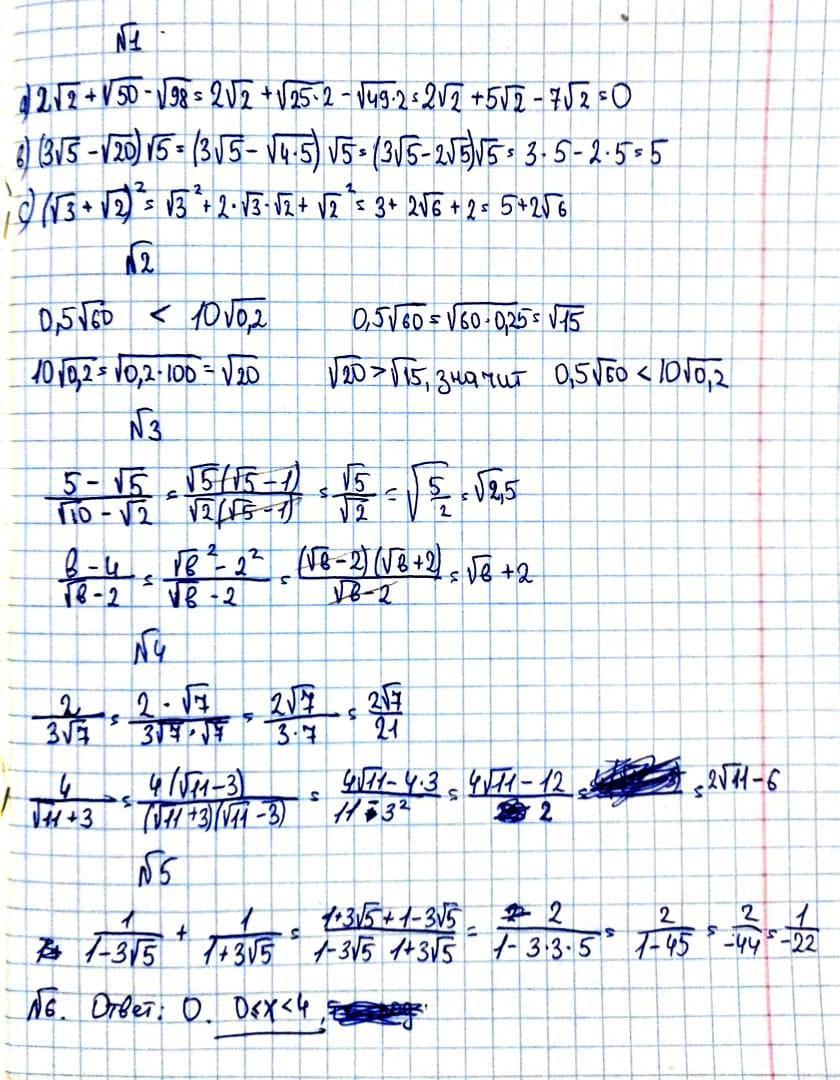 №1
а) 2√2 + √50 - √98 = 2√2 + √25·2 - √49·2 = 2√2 + 5√2 - 7√2 = 0
в) (3√5 - √20)√5 = (3√5 - √4·5)√5 = (3√5 - 2√5)√5 = 3·5 - 2·5 = 5
с) (√3 + √2)² = √3² + 2·√3·√2 + √2² = 3 + 2√6 + 2 = 5 + 2√6
№2
0,5√60 < 10√0,2 0,5√60 = √60·0,25 = √15
10√0,2 = √0,2·100 = √20 √20 > √15, значит 0,5√60 < 10√0,2
№3
(5 - √5)/(√10 - √2) = (√5(√5 - 1))/(√2(√5 - 1)) = √5/√2 = √(5/2) = √2,5
(в - 4)/(√в - 2) = (√в² - 2²)/(√в - 2) = ((√в - 2)(√в + 2))/(√в - 2) = √в + 2
№4
2/(3√7) = (2·√7)/(3√7·√7) = (2√7)/(3·7) = (2√7)/21
4/(√11 + 3) = (4(√11 - 3))/((√11 + 3)(√11 - 3)) = (4√11 - 4·3)/(11 - 3²) = (4√11 - 12)/2 = = 2√11 - 6
№5
1/(1 - 3√5) + 1/(1 + 3√5) = (1 + 3√5 + 1 - 3√5)/(1 - 3√5 1 + 3√5) = 2/(1 - 3·3·5) = 2/(1 - 45) = 2/(-44) = 1/(-22)
№6. Ответ: 0. 0≤x<4,